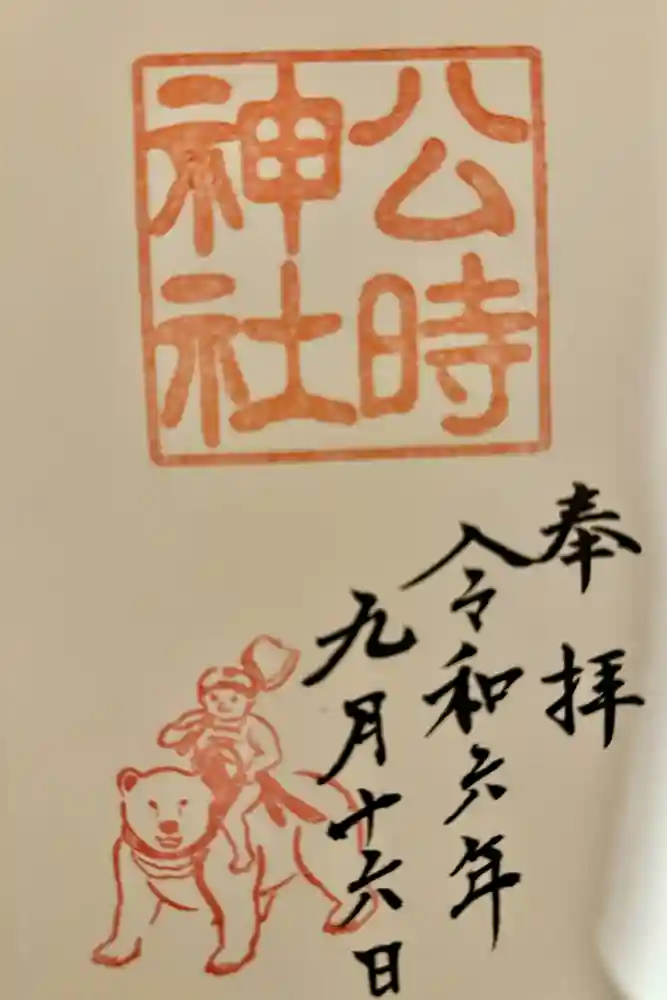 公時
神社
奉拝
令和六年
九月十六日